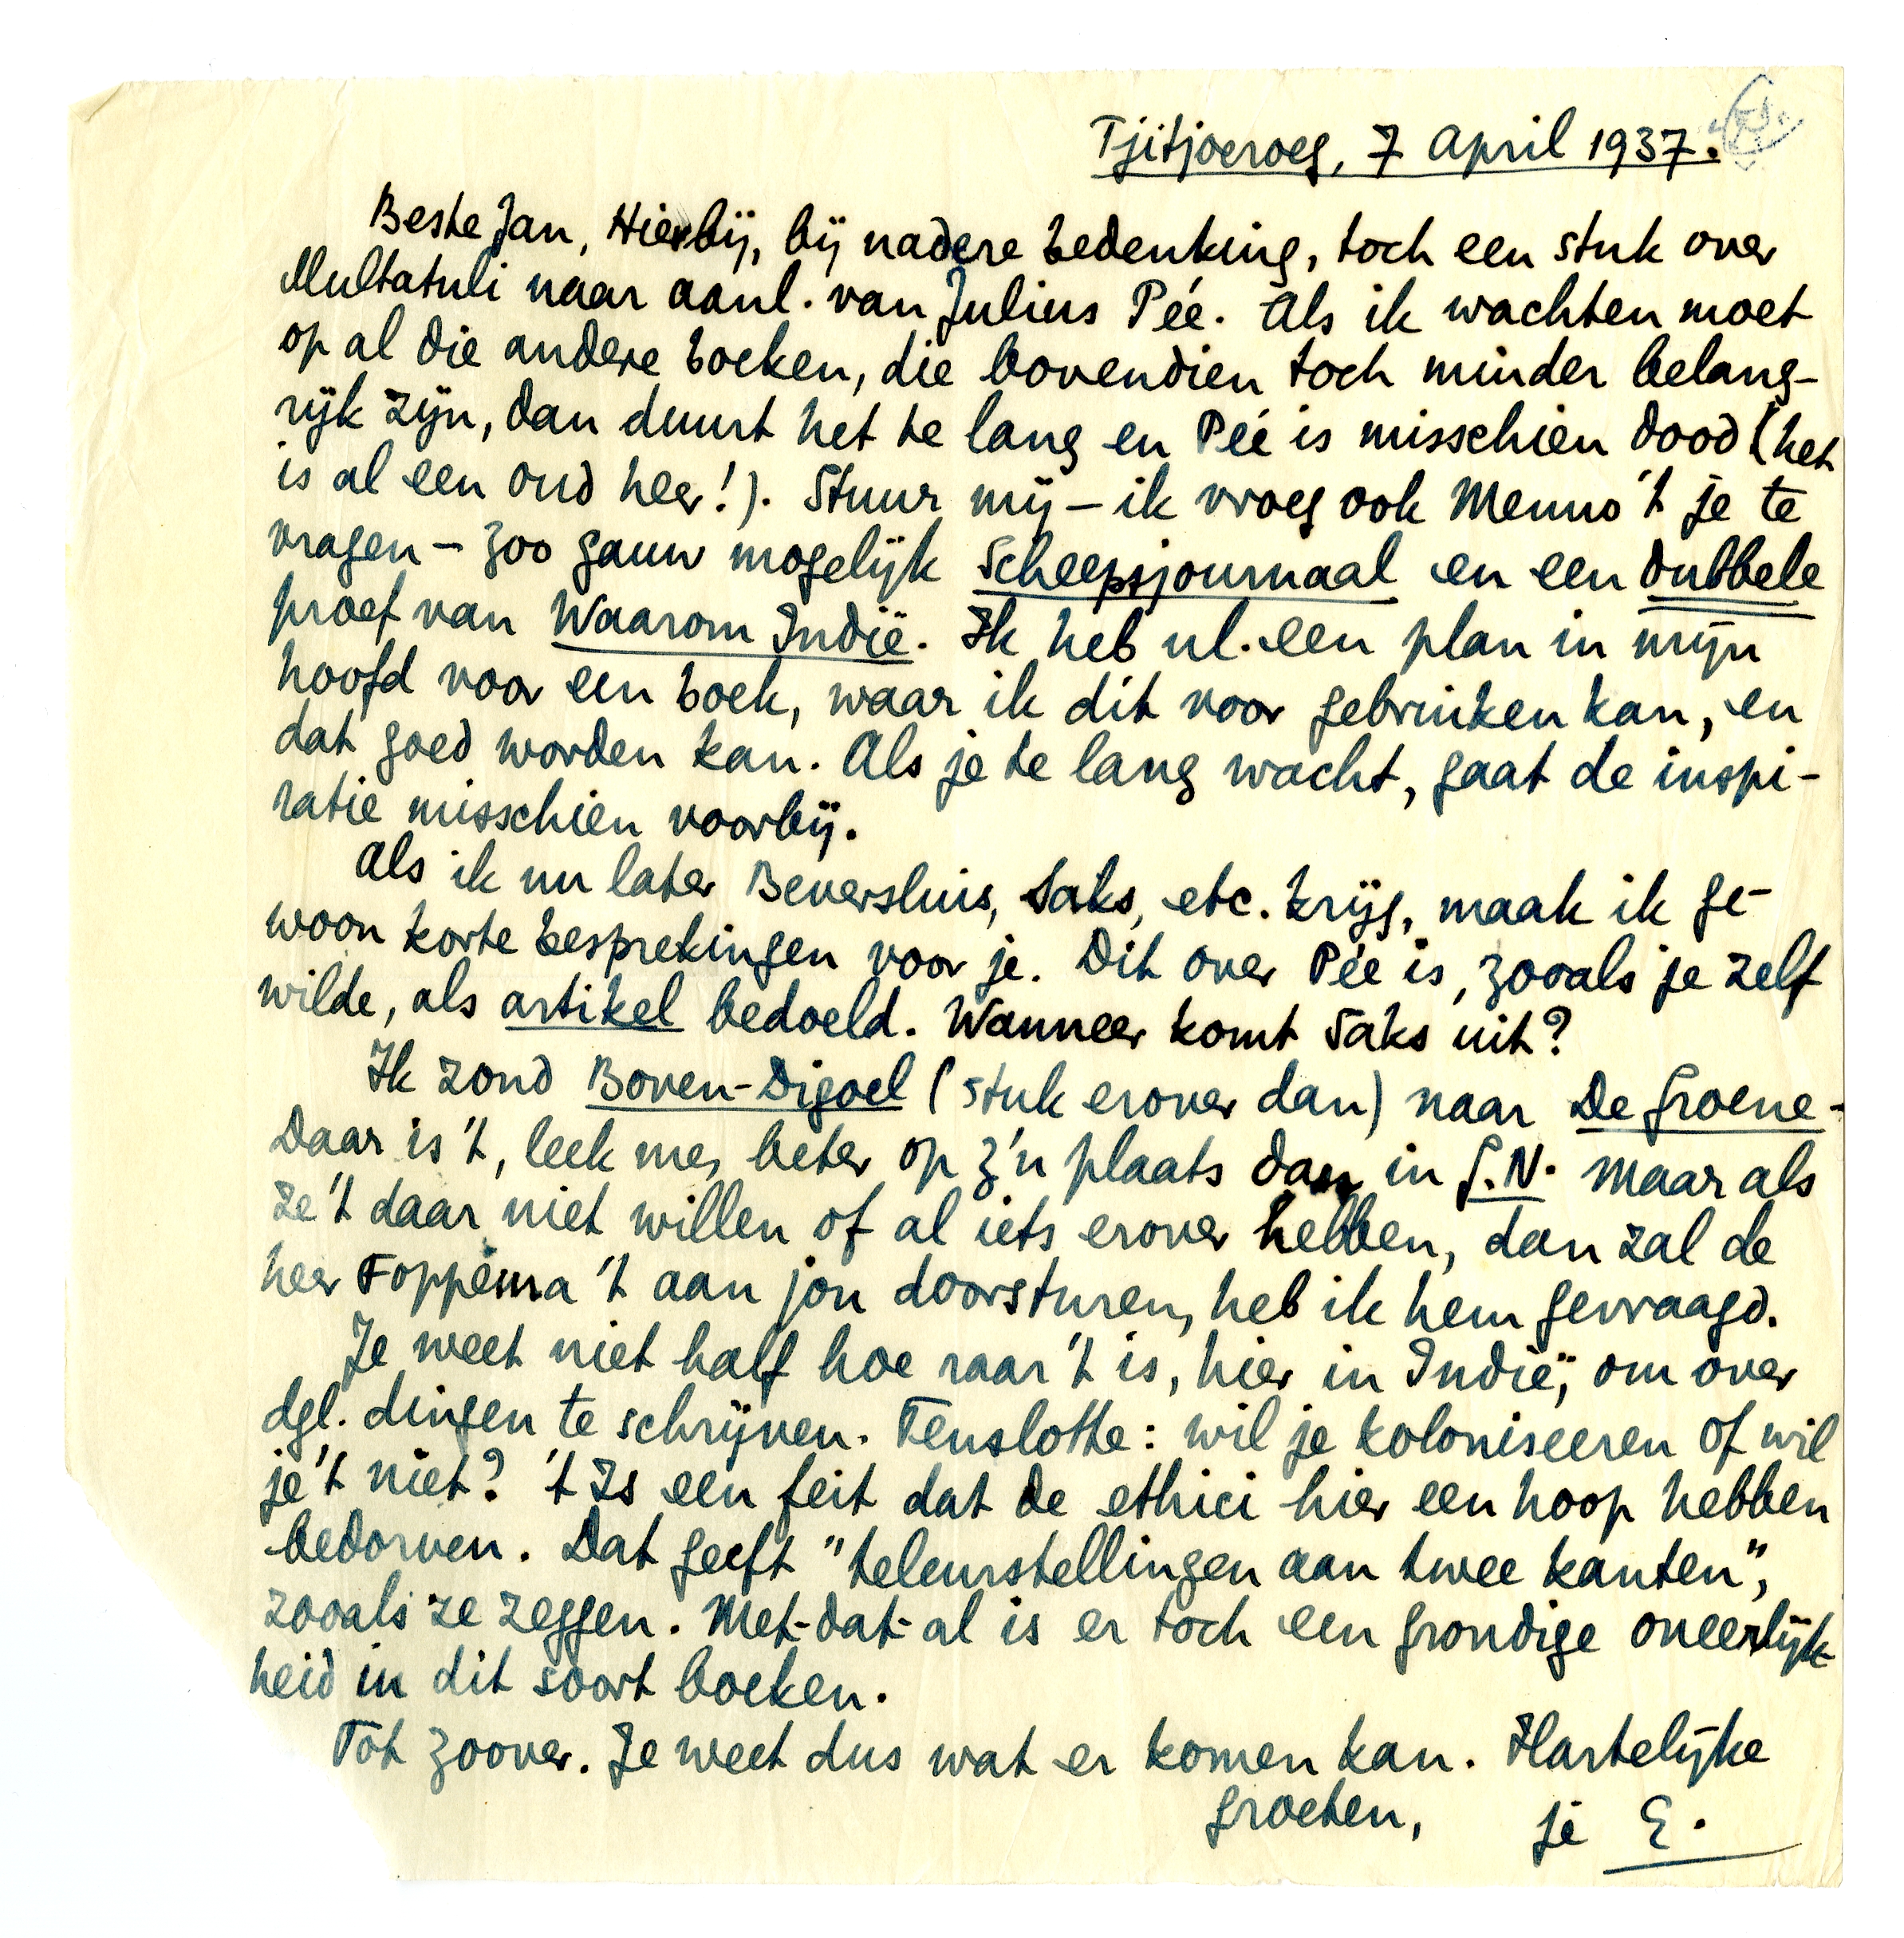 Tjitjoeroeg, 7 April 1937.
Beste Jan, Hierbij, bij nadere bedenking, toch een stuk over
Multatuli naar aanl. van Julius Pée. Als ik wachten moet
op al die andere boeken, die bovendien toch minder belang-
rijk zijn, dan duurt het te lang en Pée is misschien dood (het
is al een oud heer!). Stuur mij – ik vroeg ook Menno 't je te
vragen – zoo gauw mogelijk Scheepsjournaal en een dubbele
proef van Waarom Indië. Ik heb nl. een plan in mijn
hoofd voor een boek, waar ik dit voor gebruiken kan, en
dat goed worden kan. Als je te lang wacht, gaat de inspi-
ratie misschien voorbij.
Als ik nu later Beversluis, Saks, etc. krijg, maak ik ge-
woon korte besprekingen voor je. Dit over Pée is, zooals je zelf
wilde, als artikel bedoeld. Wanneer komt Saks uit?
Ik zond Boven-Digoel (stuk erover dan) naar De Groene.
Daar is 't, leek me, beter op z'n plaats dan in G.N. Maar als
ze 't daar niet willen of al iets erover hebben, dan zal de
heer Foppema 't aan jou doorsturen, heb ik hem gevraagd.
Je weet niet half hoe raar 't is, hier in Indië, om over
dgl. dingen te schrijven. Tenslotte: wil je koloniseeren of wil
je 't niet? 't Is een feit dat de ethici hier een hoop hebben
bedorven. Dat geeft "teleurstellingen aan twee kanten",
zooals ze zeggen. Met-dat-al is er toch een grondige oneerlijk-
heid in dit soort boeken.
Tot zoover. Je weet dus wat er komen kan. Hartelijke
groeten, je E.